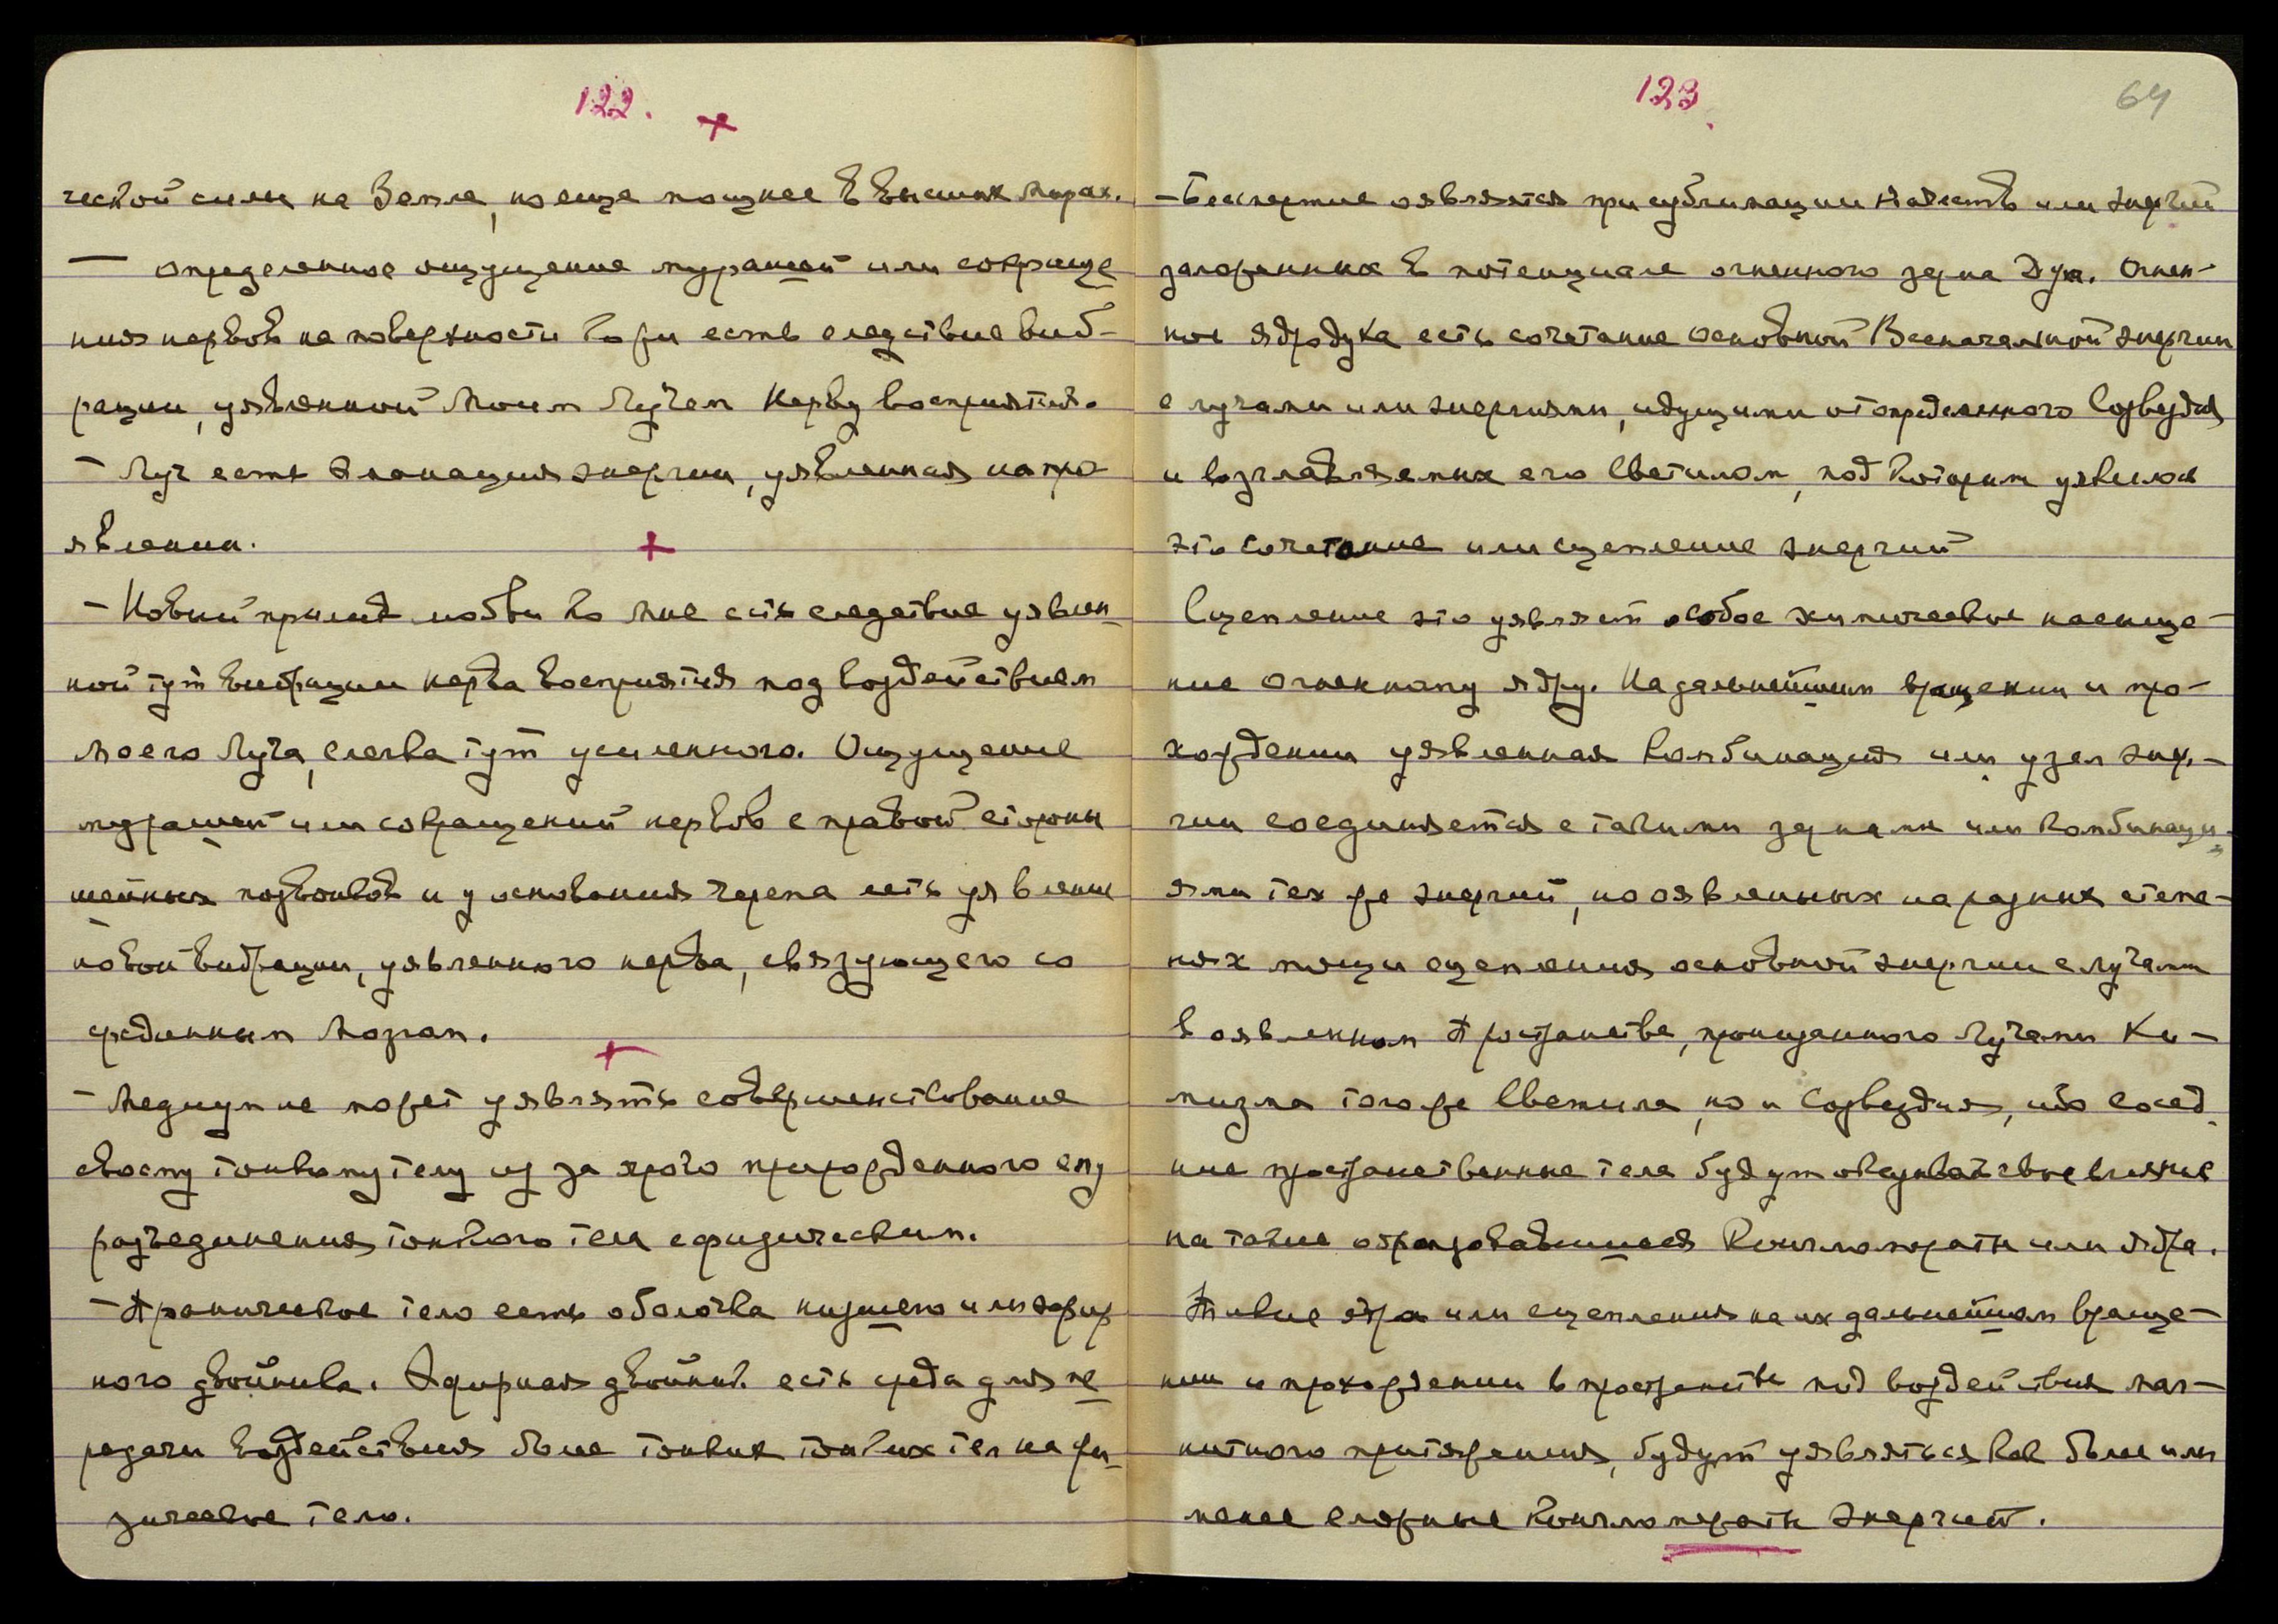 122. +
ческой силы на Земле, но еще мощнее в высших Мирах.
— Определенное ощущение мурашей или сокраще
ния нервов на поверхности кожи есть следствие виб-
рации, уявленной Моим Лучем нерву восприятия.
- Луч есть эманация энергии, уявленная на про
явлении.
+
- Новый прилив любви ко Мне есть следствие уявлен
ной тут вибрации нерва восприятия под воздействием
Моего Луча, слегка тут усиленного. Ощущение
мурашей или сокращений нервов с правой стороны
шейных позвонков и у основания черепа есть уявление
новой вибрации, уявленного нерва, связующего со
срединным Мозгом.
+
- Медиум не может уявлять совершенствование
своему тонкому телу из за ярого прирожденного ему
разъединения тонкого тела с физическим.
- Праническое тело есть оболочка низшего или эфир
ного двойника. Эфирный двойник есть среда для пе
редачи воздействия более тонких тонких тел на фи
зическое тело.
123. 64
- Бессмертие оявляется при сублимации качеств или энергий
заложенных в потенциале огненного зерна Духа. Огнен-
ное ядро духа есть сочетание основной Всеначальной энергии
с лучами или энергиями, идущими от определенного Созвездия
и возглавляемых его Светилом, под которым уявилось
это сочетание или сцепление энергий
Сцепление это уявляет особое химическое насыще-
ние огненному ядру. На дальнейшем вращении и про-
хождении уявленная комбинация или узел энер-
гии соединяется с такими зернами или комбинаци
ями тех же энергий, но оявленных на разных степе-
нях мощи сцепления основной энергии с лучами
в оявленном Пространстве, пронизанного Лучами Хи-
мизма того же Светила, но и Созвездия, ибо сосед
ние пространственные тела будут оказывать свое влияние
на такие образовавшиеся Конгломераты или ядра.
Такие ядра или сцепления на их дальнейшем враще-
нии и прохождении в пространстве под воздействия маг-
нитного притяжения, будут уявляться как более или
менее сложные Конгломераты энергий.